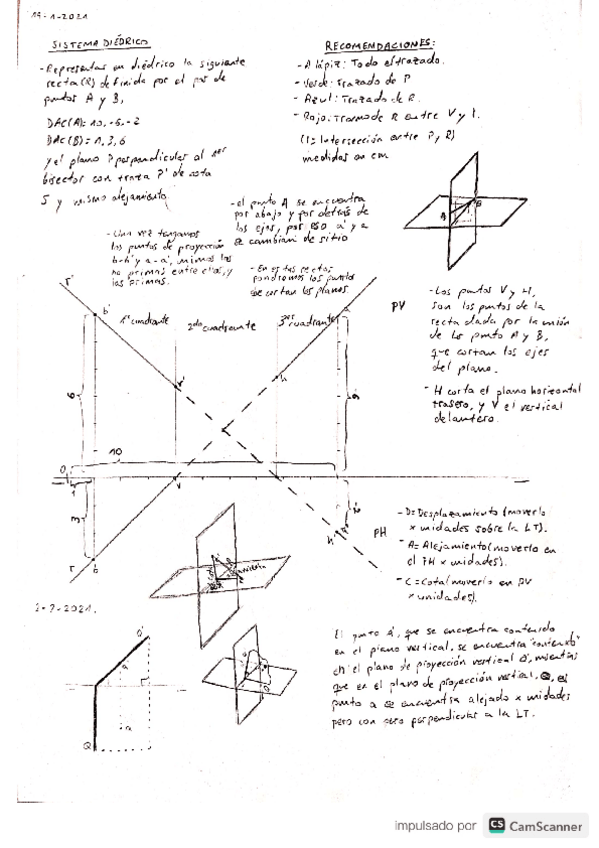 19-1-2021
SISTEMA DIÉDRICO
- Representar en diédrico la siguiente
recta (R) definida por el par de
puntos A y B,
DAC(A)= 10, -6, -2
DAC(B)= 1, 3, 6
y el plano P perpendicular al 1er
bisector con traza P' de cota
5 y mismo alejamiento.
RECOMENDACIONES:
- A lápiz: Todo el trazado.
- Verde: Trazado de P
- Azul: Trazado de R.
- Rojo: Tramo de R entre V y I.
(I = Intersección entre P y R)
medidas en cm
- el punto A se encuentra
por abajo y por detrás de
los ejes, por eso a' y a
se cambian de sitio
- Una vez tengamos
los puntos de proyección
b-b' y a-a', unimos los
no primos entre ellos, y
los primos.
- En estas rectas
pondremos los puntos
que cortan los planos.
1er cuadrante
2do cuadrante
3er cuadrante
PV
r'
b'
v'
h
a
6
10
0
1
3
v
r
b
h'
PH
- Los puntos V y H,
son los puntos de la
recta dada por la unión
de los punto A y B,
que cortan los ejes
del plano.
- H corta el plano horizontal
trasero, y V el vertical
delantero.
- D= Desplazamiento (moverlo
x unidades sobre la LT).
- A= Alejamiento (moverlo en
el PH x unidades).
- C= Cota (moverlo en PV
x unidades).
Q'
a'
a
Q
El punto a', que se encuentra contenido
en el plano vertical, se encuentra "contenido"
en el plano de proyección vertical Q', mientras
que en el plano de proyección vertical, Q, el
punto a se encuentra alejado x unidades
pero con perpendicular a la LT.
impulsado por CS CamScanner